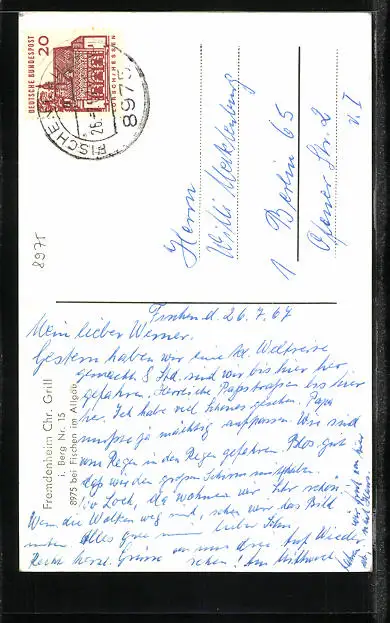 DEUTSCHE BUNDESPOST
20
LORSCH/HESSEN
FISCHEN
26.
8975
8975
Herrn
Willi Mecklenburg
1 Berlin 65
Ofener Str. 2
v. I
Fischen d. 26.7.67
Mein lieber Werner.
Gestern haben wir eine Weltreise
gemacht 8 Std. sind wir bis hier her
gefahren. Herrliche Passtraßen bis hier
her. Ich habe viel Schönes gesehen. Papa
mußte ja mächtig aufpassen. Wir sind
vom Regen in den Regen gefahren. Blos gut
daß wir den großen Schirm mithaben.
Loch, da wohnen wir. Sehr schön
Wenn die Wolken weg sind, sehen wir das Bild
unten. Alles gute mein lieber Sohn
Recht herzl. Grüsse von uns drei. Auf Wieder
sehen! Am Mittwoch
fahren wir fort von hier
ab, nach Hause.
Fremdenheim Chr. Grill
i. Berg Nr. 15
8975 bei Fischen im Allgäu